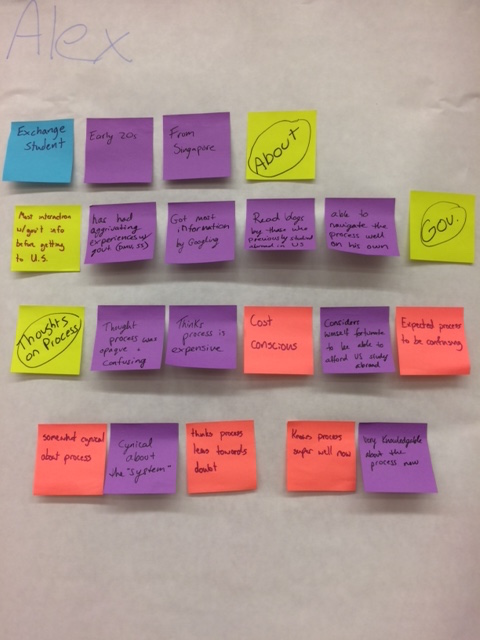 Alex
Exchange
Student
Early 20s
From
Singapore
About
Most interaction
w/gov't info
before getting
to U.S.
has had
aggrivating
experiences w/
gov't
Got most
information
by Googling
Read blogs
by those who
previously studied
abroad in US
able to
navigate the
process well
on his own
Gov.
Thoughts
on Process
Thought
process was
opaque +
confusing
Thinks
process is
expensive
Cost
Conscious
Considers
himself fortunate
to be able to
afford US study
abroad
Expected process
to be confusing
somewhat cynical
about process
Cynical
about
the "system"
thinks process
leans towards
doubt
Knows process
super well now
Very knowledgable
about the
process now